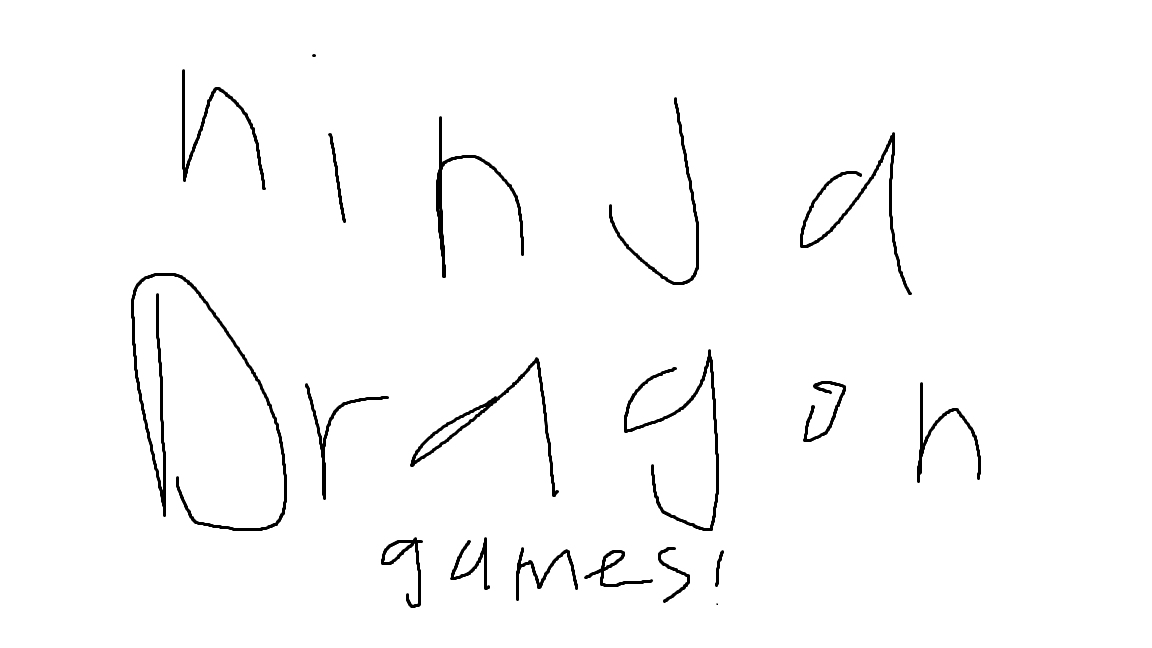 ninJa
Dragon
games!